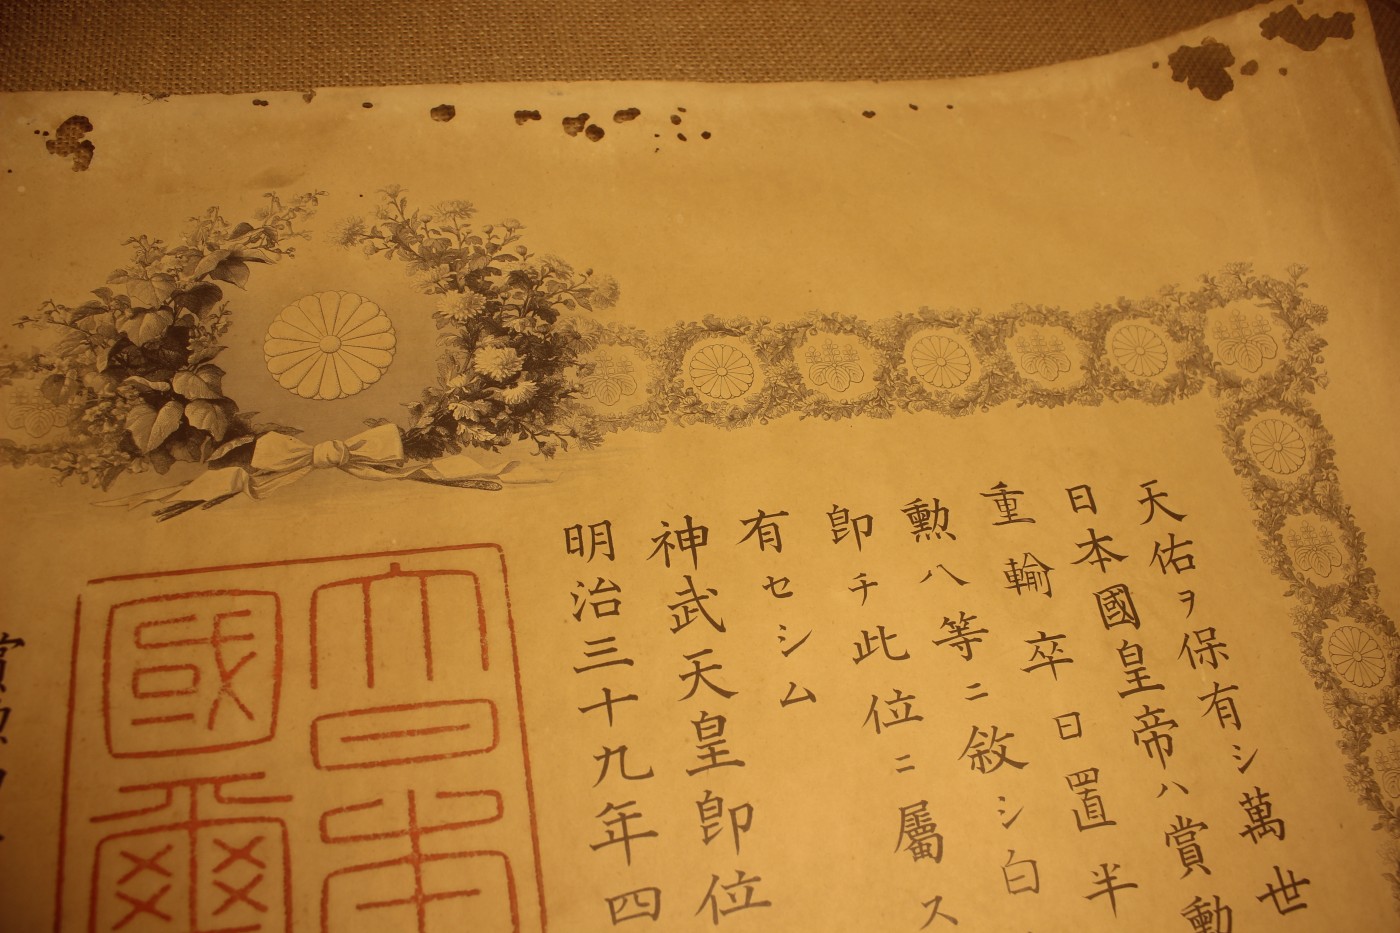 天佑ヲ保有シ萬世
日本國皇帝ハ賞勳
重輸卒日置半
勲八等ニ敘シ白
卽チ此位ニ屬ス
有セシム
神武天皇卽位
明治三十九年四
大日本
國璽